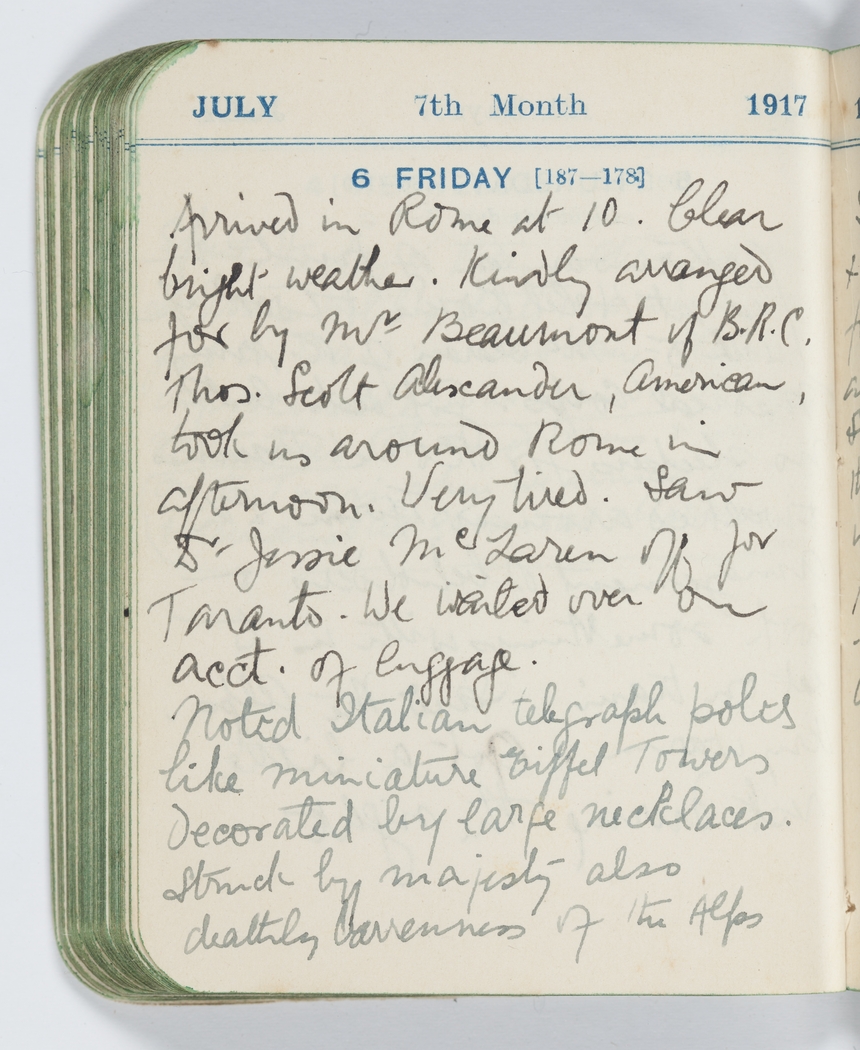 JULY 7th Month 1917
6 FRIDAY [187—178]
Arrived in Rome at 10. Clear
bright weather. Kindly arranged
for by Mr Beaumont of B.R.C.
Thos. Scott Alexander, American,
took us around Rome in
afternoon. Very tired. Saw
Dr Jessie McLaren off for
Taranto. We waited over on
acct. of luggage.
Noted Italian telegraph poles
like miniature Eiffel Towers
decorated by large necklaces.
Struck by majesty also
deathly barrenness of the Alps